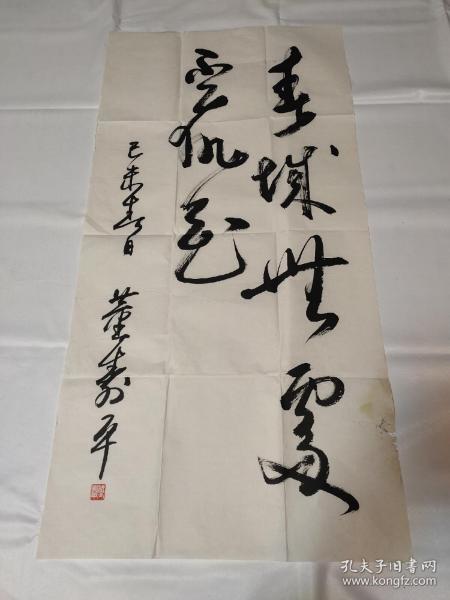 春城無處
不飛花
己未春日
董壽平
孔夫子旧书网
www.kongfz.com